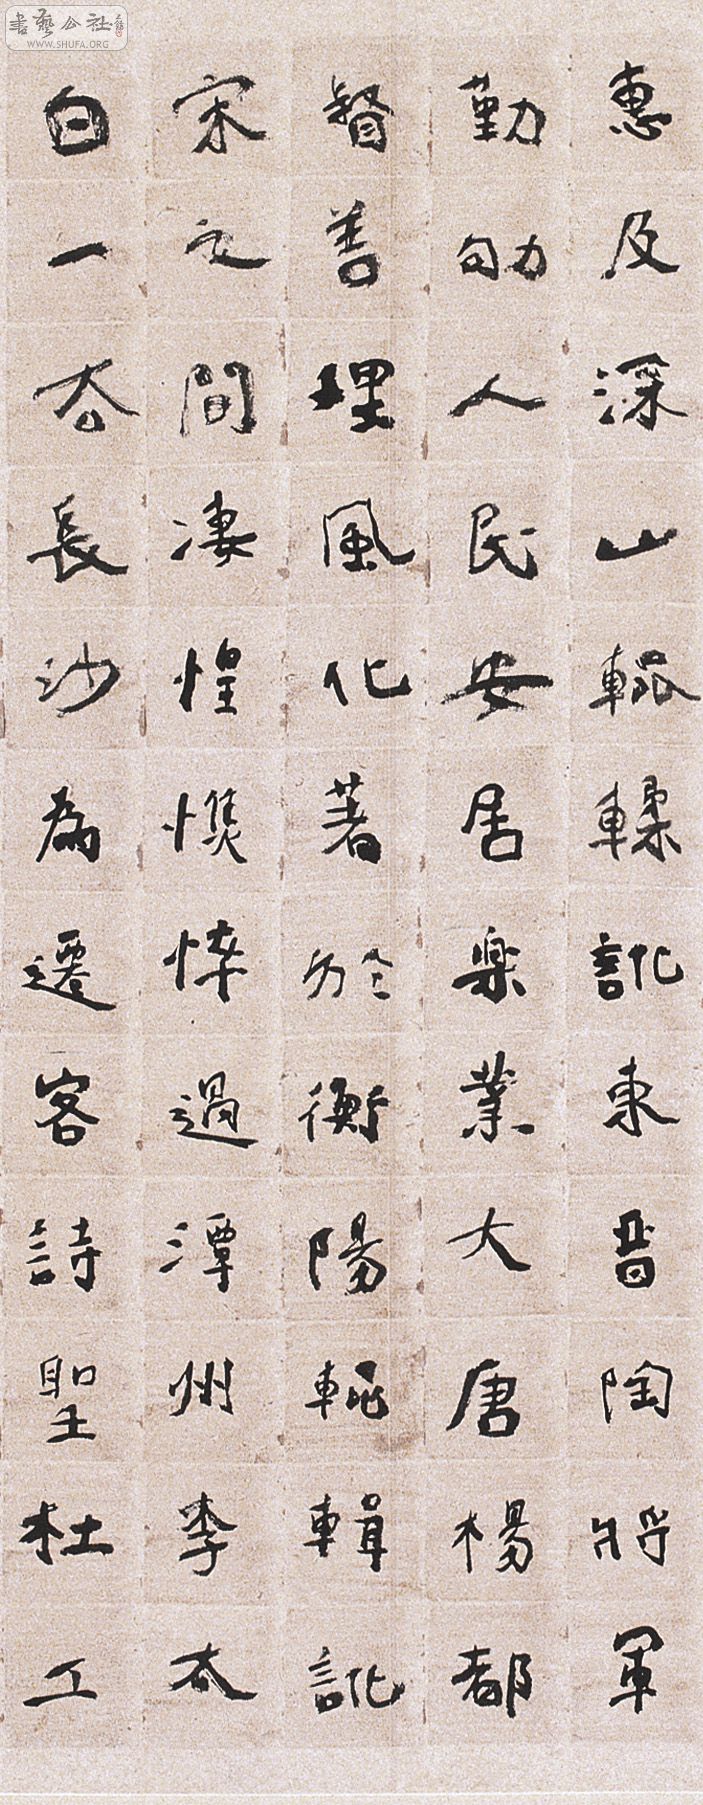 惠及深山輒輮訛東晉陶將軍
勤劬人民安居樂業大唐楊都
督善理風化著於衡陽輒輯訛
宋之問淒惶憔悴過潭州李太
白一去長沙為遷客詩聖杜工
書藝公社
WWW.SHUFA.ORG